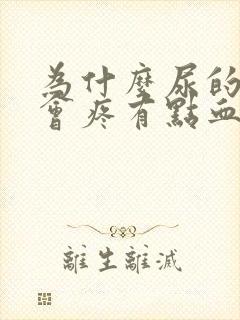 為什麼尿的
會疼有點血
離生離滅